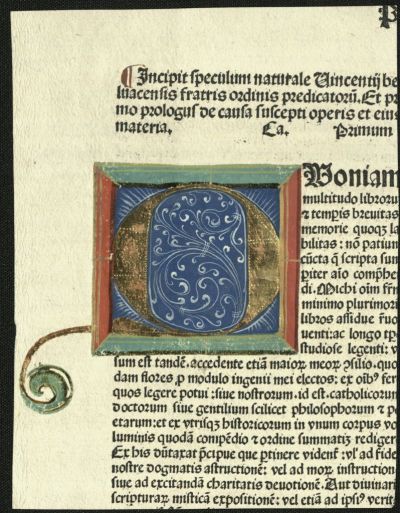 P
¶ Incipit speculum naturale Vincentij be
luacensis fratris ordinis predicatorū. Et pri
mo prologus de causa suscepti operis et eius
materia. Ca. Primum
QVoniam
multitudo libroru
⁊ tempis breuitas
memorie quoqꝫ la
bilitas : nō patiun
cūcta q̄ scripta sun
piter aīo cōpꝛhe
di. Michi oīm fr̄m
minimo plurimoꝛ
libros assidue
uenti: ac longo tp̄
studiose legenti: v
sum est tandē. accedente etiā maioꝝ meoꝝ ꝯsilio. quo
dam flores ꝓ modulo ingenii mei electos: ex oīb⁹ fer
quos legere potui : siue nostrorum. id est. catholicorum
doctorum siue gentilium scilicet philosophorum ⁊ po
etarum: et ex vtrisqꝫ historicorum in vnum corpus vo
luminis quodā compēdio ⁊ ordine summatī rediger
Ex his dūtaxat p̄cipue que ptinere vident̄ : vl' ad fidei
nostre dogmatis astructionē : vel ad moꝝ instruction
siue ad excitandā charitatis deuotionē. Aut diuinarū
scripturaꝝ misticā expositionē : vel etiā ad ip̄s⁹ verit